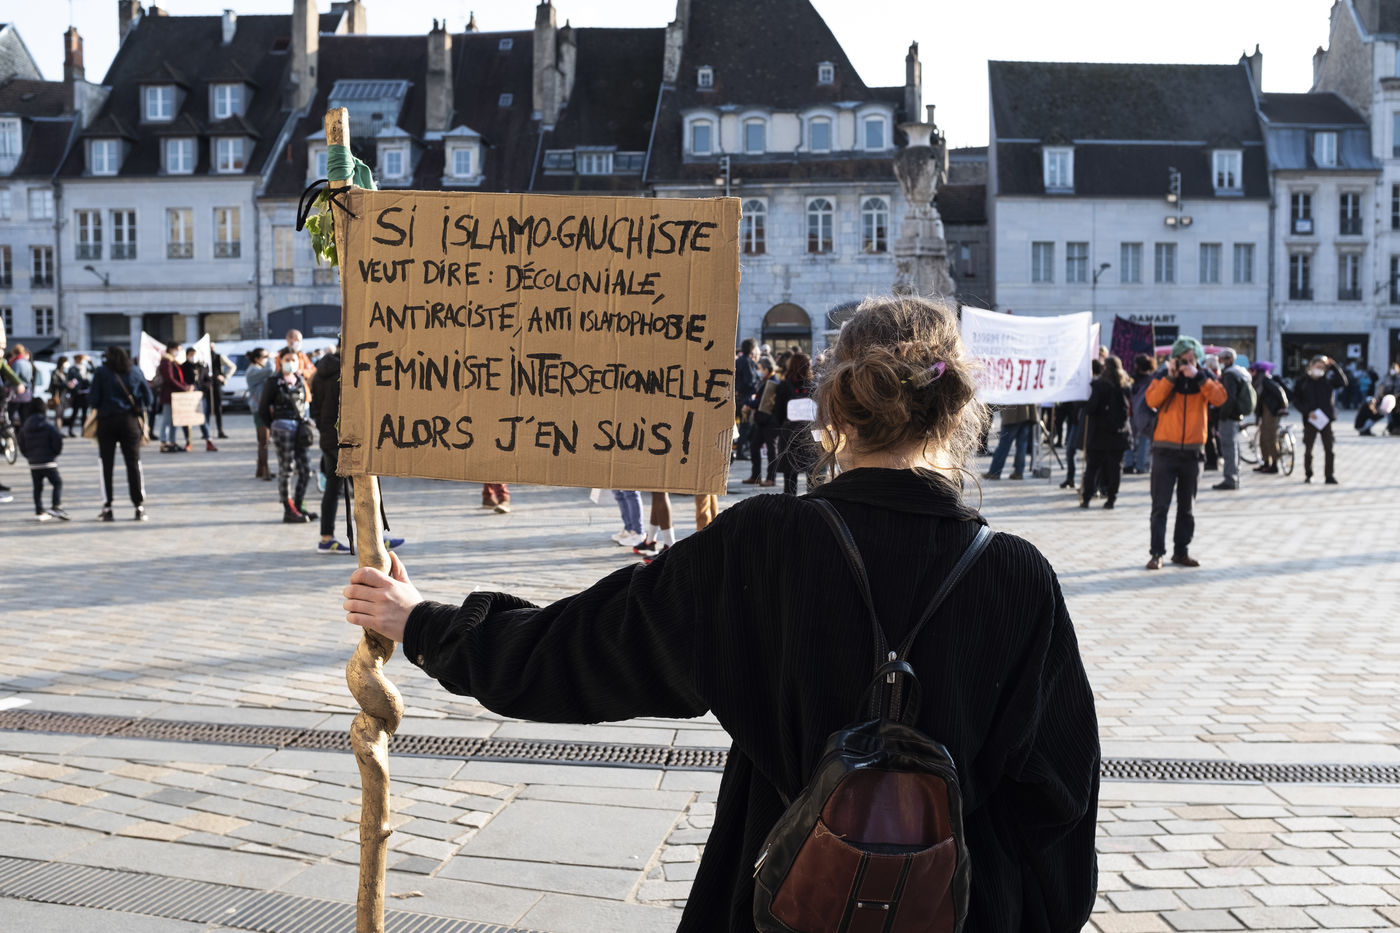 SI ISLAMO-GAUCHISTE
VEUT DIRE : DÉCOLONIALE,
ANTIRACISTE, ANTI ISLAMOPHOBE,
FEMINISTE INTERSECTIONNELLE,
ALORS J'EN SUIS !
JE TE CRO